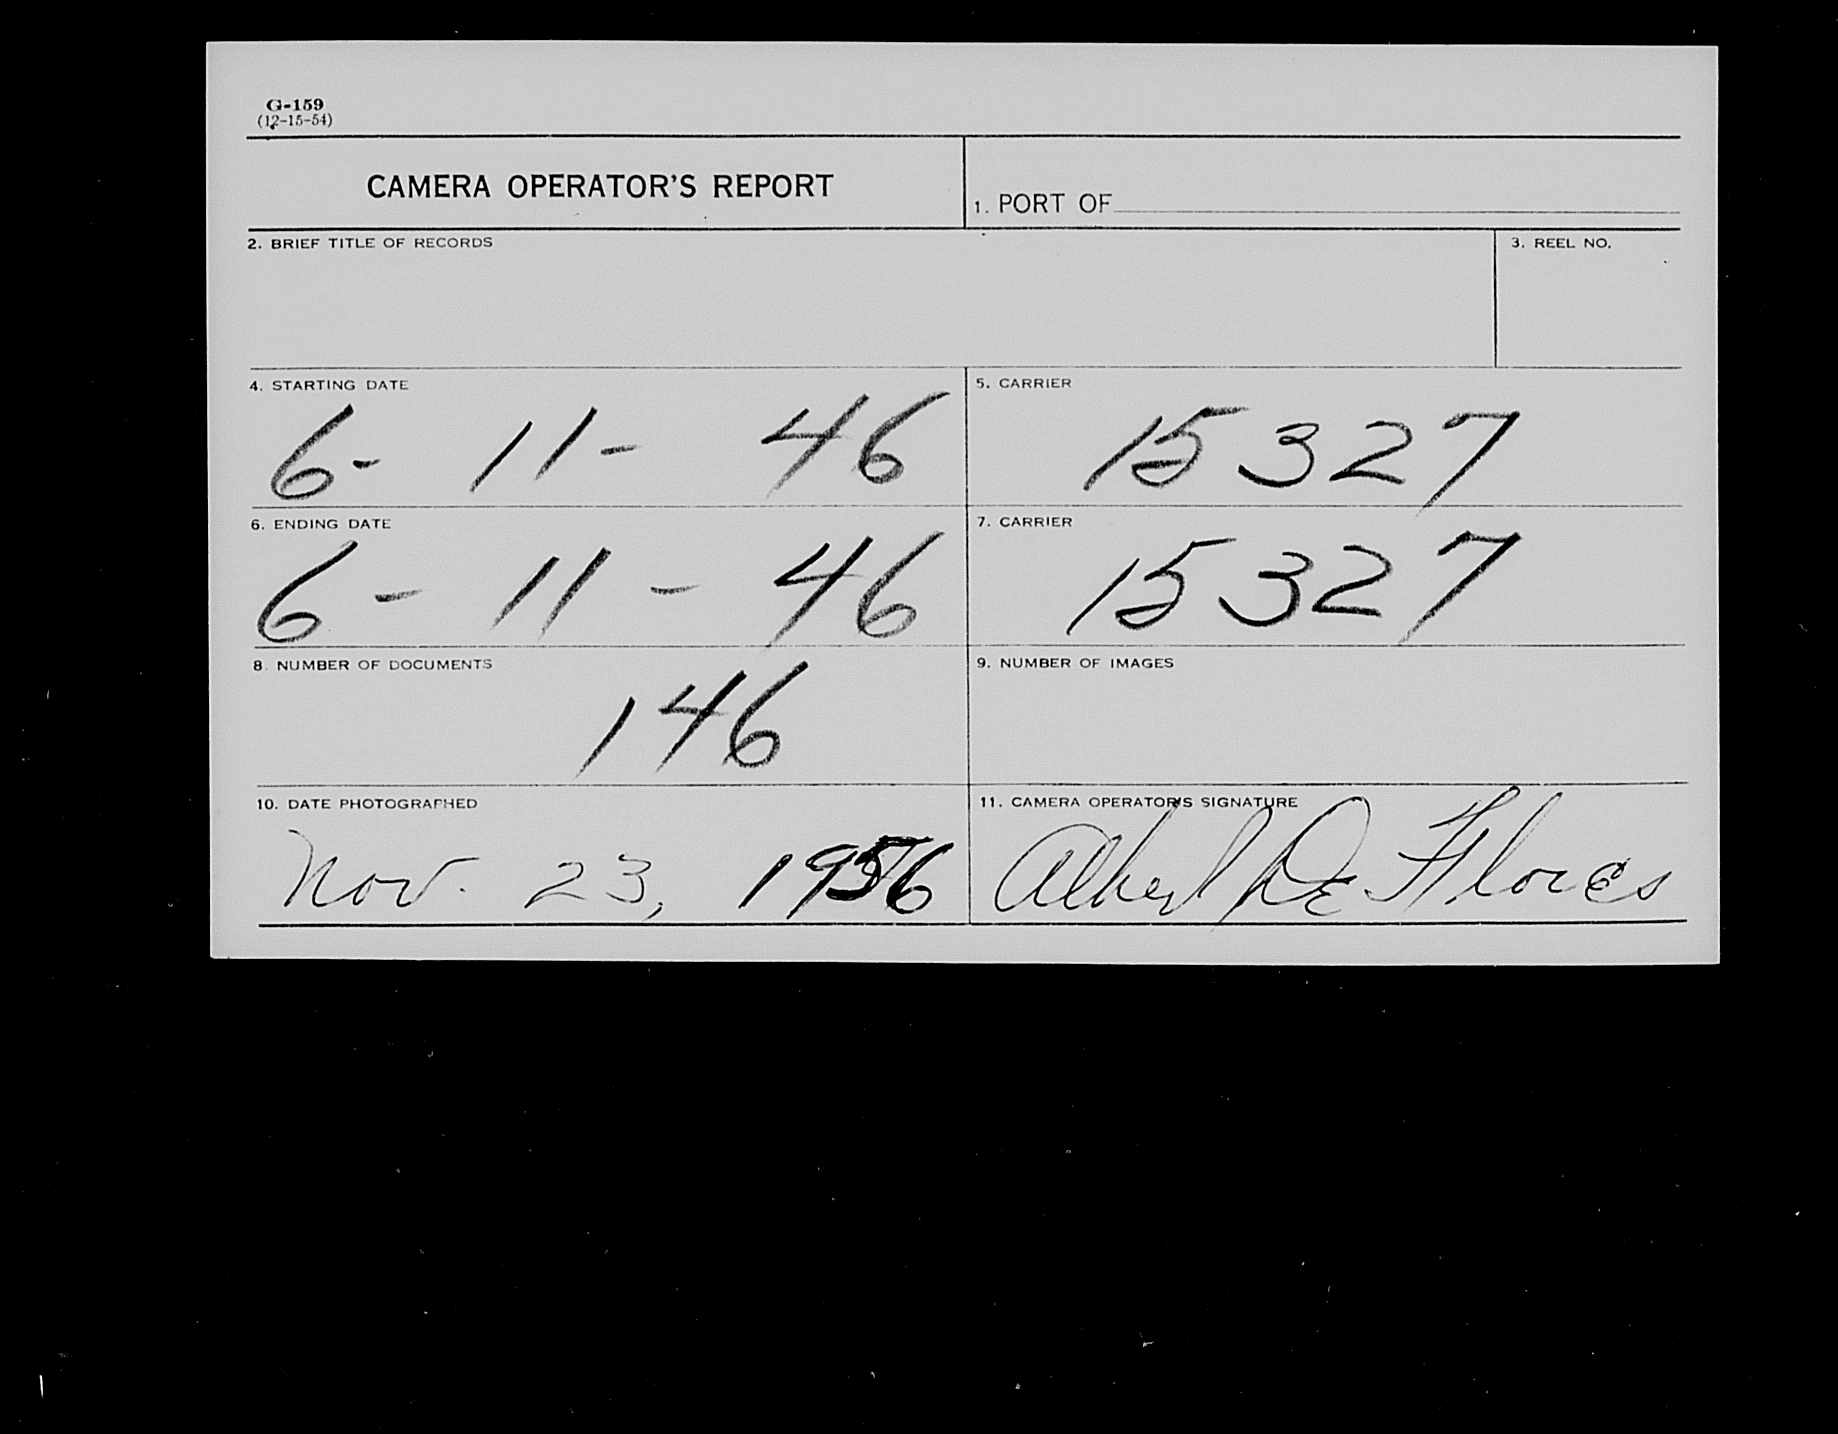 G-159
(12-15-54)
CAMERA OPERATOR'S REPORT
1. PORT OF
2. BRIEF TITLE OF RECORDS
3. REEL NO.
4. STARTING DATE
6- 11- 46
5. CARRIER
15327
6. ENDING DATE
6 - 11 - 46
7. CARRIER
15327
8. NUMBER OF DOCUMENTS
146
9. NUMBER OF IMAGES
10. DATE PHOTOGRAPHED
Nov. 23, 1956
11. CAMERA OPERATOR'S SIGNATURE
Albert De Flores